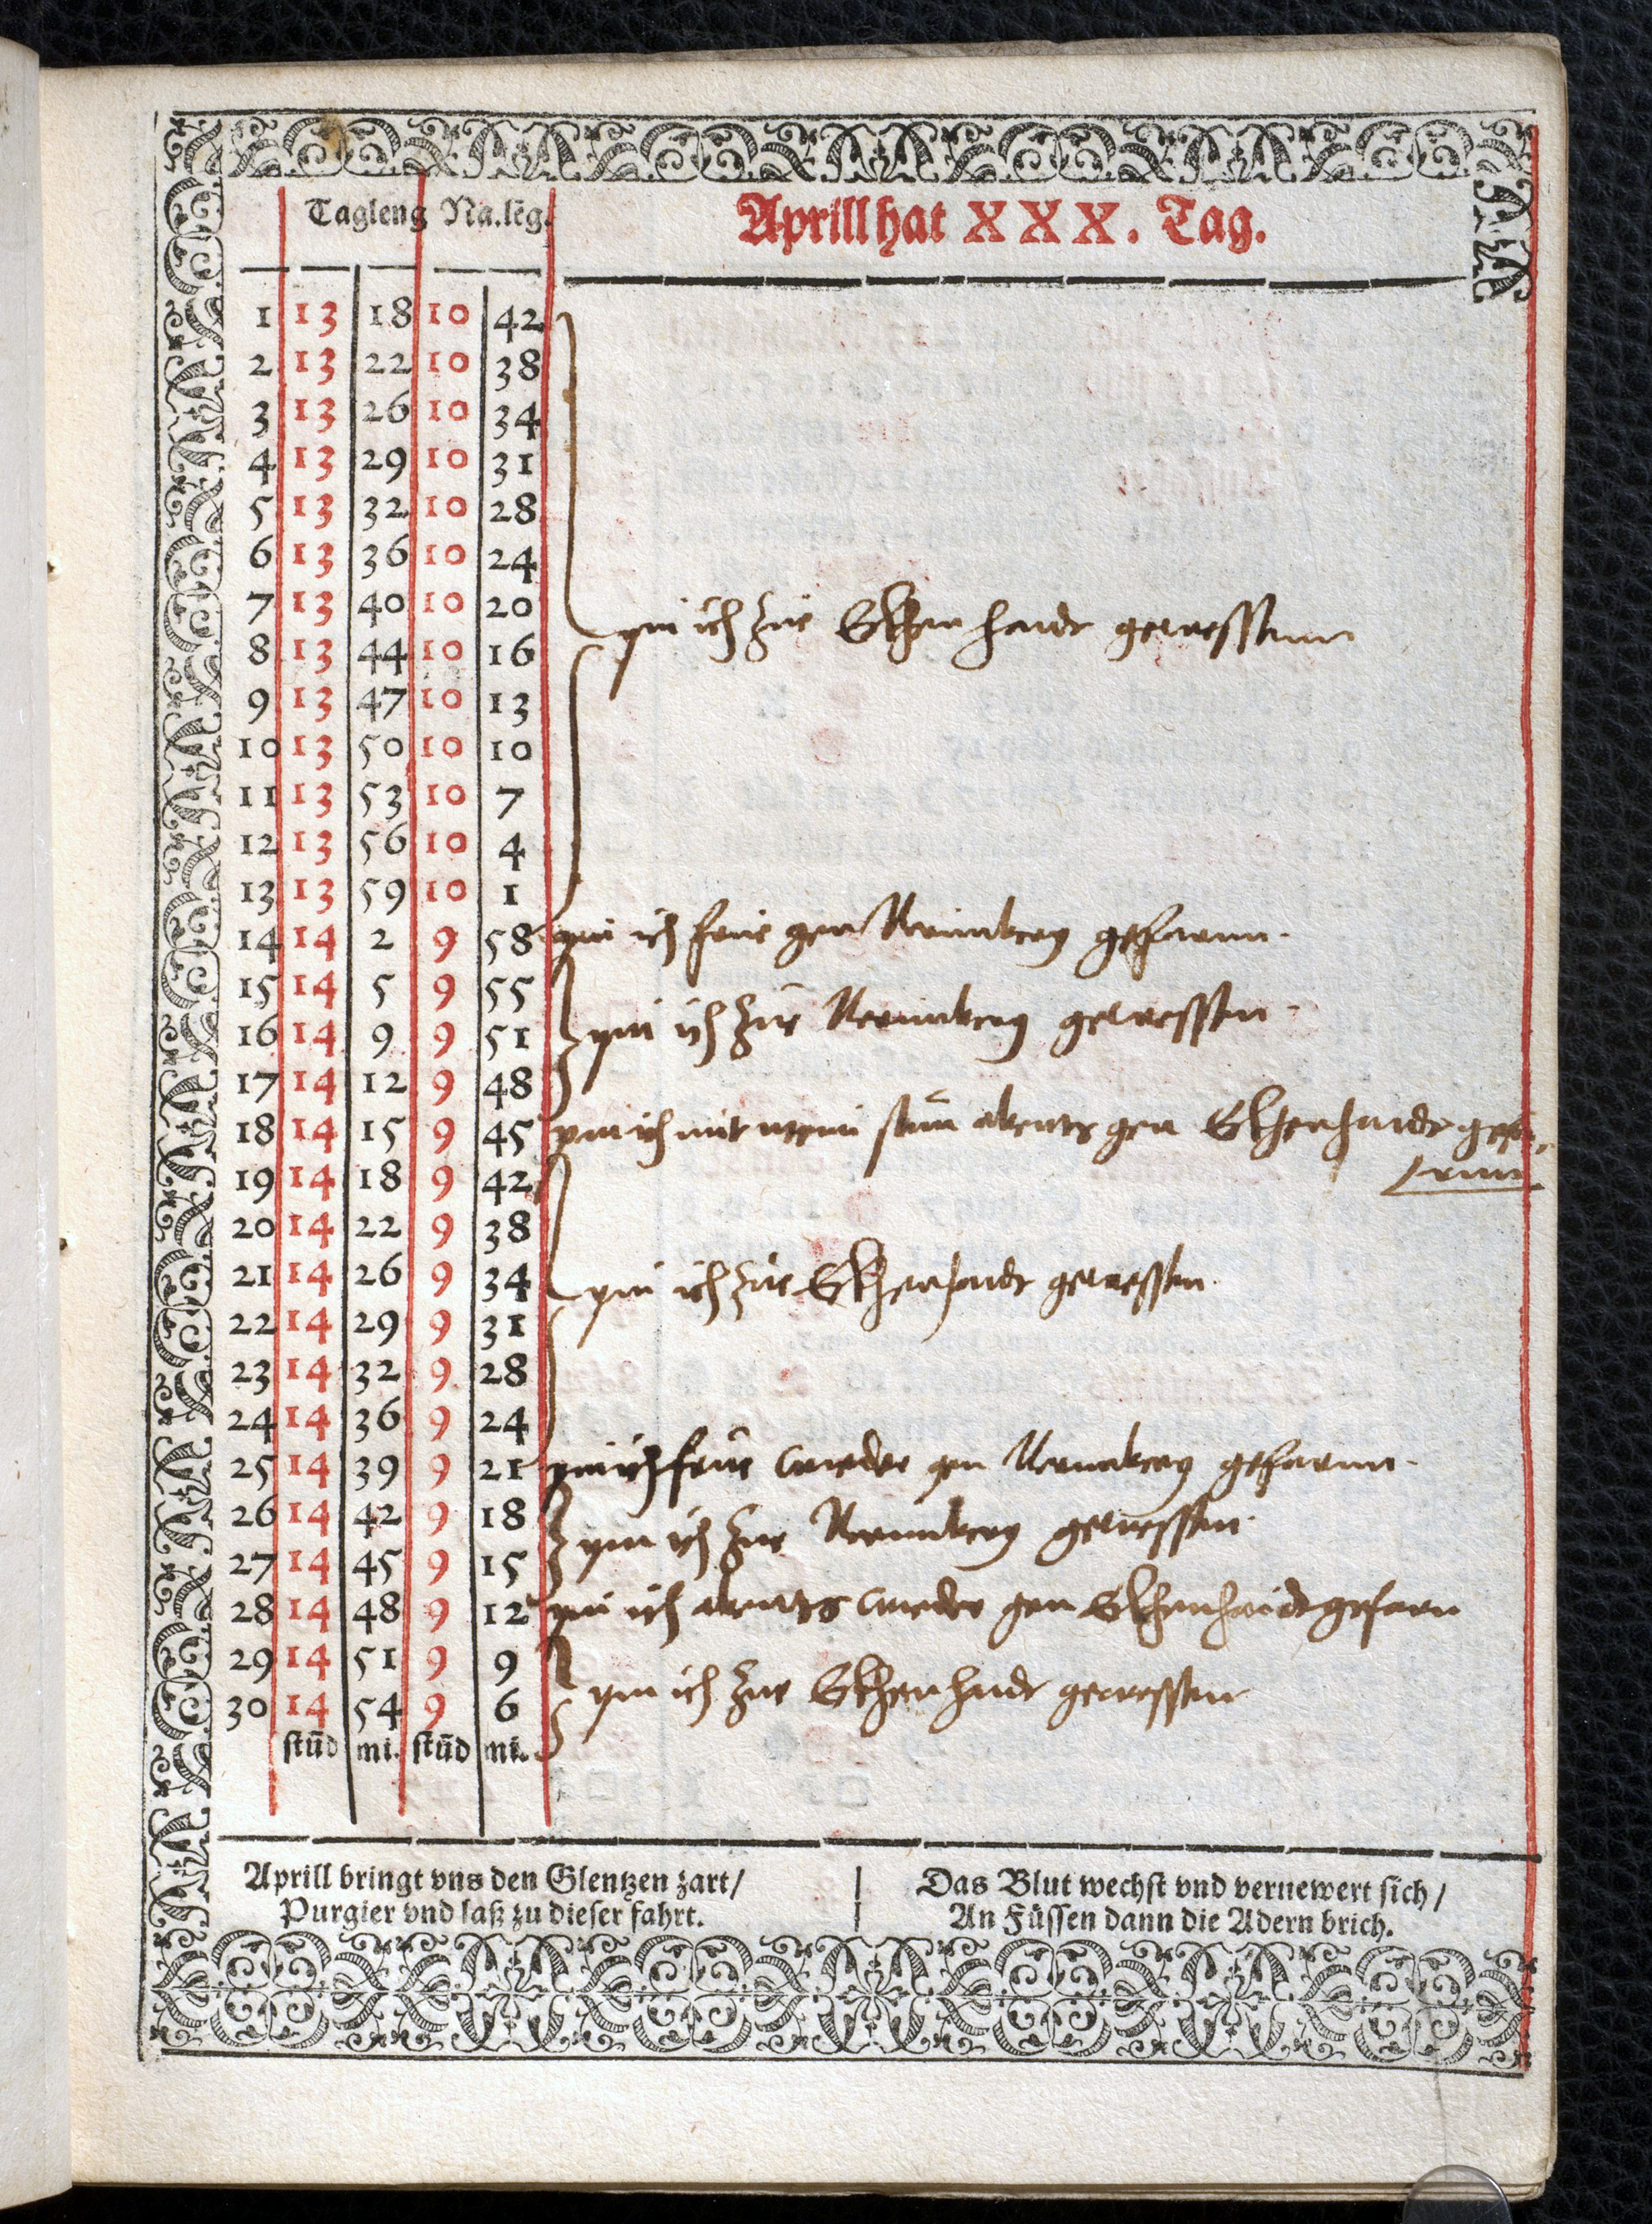 Tagleng Na.lēg.
Aprill hat XXX. Tag.
1 13 18 10 42
2 13 22 10 38
3 13 26 10 34
4 13 29 10 31
5 13 32 10 28
6 13 36 10 24
7 13 40 10 20
pin ich zue Eckhenhaidt gewessenn
8 13 44 10 16
9 13 47 10 13
10 13 50 10 10
11 13 53 10 7
12 13 56 10 4
13 13 59 10 1
14 14 2 9 58 pin ich frue gen Nermberg gefarnn.
15 14 5 9 55
16 14 9 9 51 pin ich zue Nermberg gewessen.
17 14 12 9 48
18 14 15 9 45 pin ich mit abents gen Eckhenhaidt gefa-
rnn
19 14 18 9 42
20 14 22 9 38
21 14 26 9 34 pin ich zue Eckhenhaidt gewessen.
22 14 29 9 31
23 14 32 9 28
24 14 36 9 24
25 14 39 9 21 pin ich frue wieder gen Nermberg gefarnn.
26 14 42 9 18 pin ich zue Nermberg gewessen.
27 14 45 9 15
28 14 48 9 12 pin ich abents wieder gen Eckhenhaidt gefarn
29 14 51 9 9
30 14 54 9 6 pin ich zue Eckhenhaidt gewessen
stūd mi. stūd mi.
Aprill bringt vns den Glentzen zart/
Purgier vnd laß zu dieser fahrt.
Das Blut wechst vnd vernewert sich/
An Füssen dann die Adern brich.